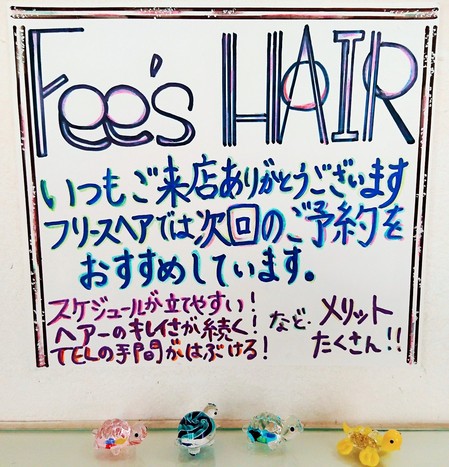 Fee's HAIR
いつもご来店ありがとうございます
フリースヘアでは次回のご予約を
おすすめしています。
スケジュールが立てやすい!
ヘアーのキレイさが続く!
TELの手間がはぶける!
など メリット
たくさん!!